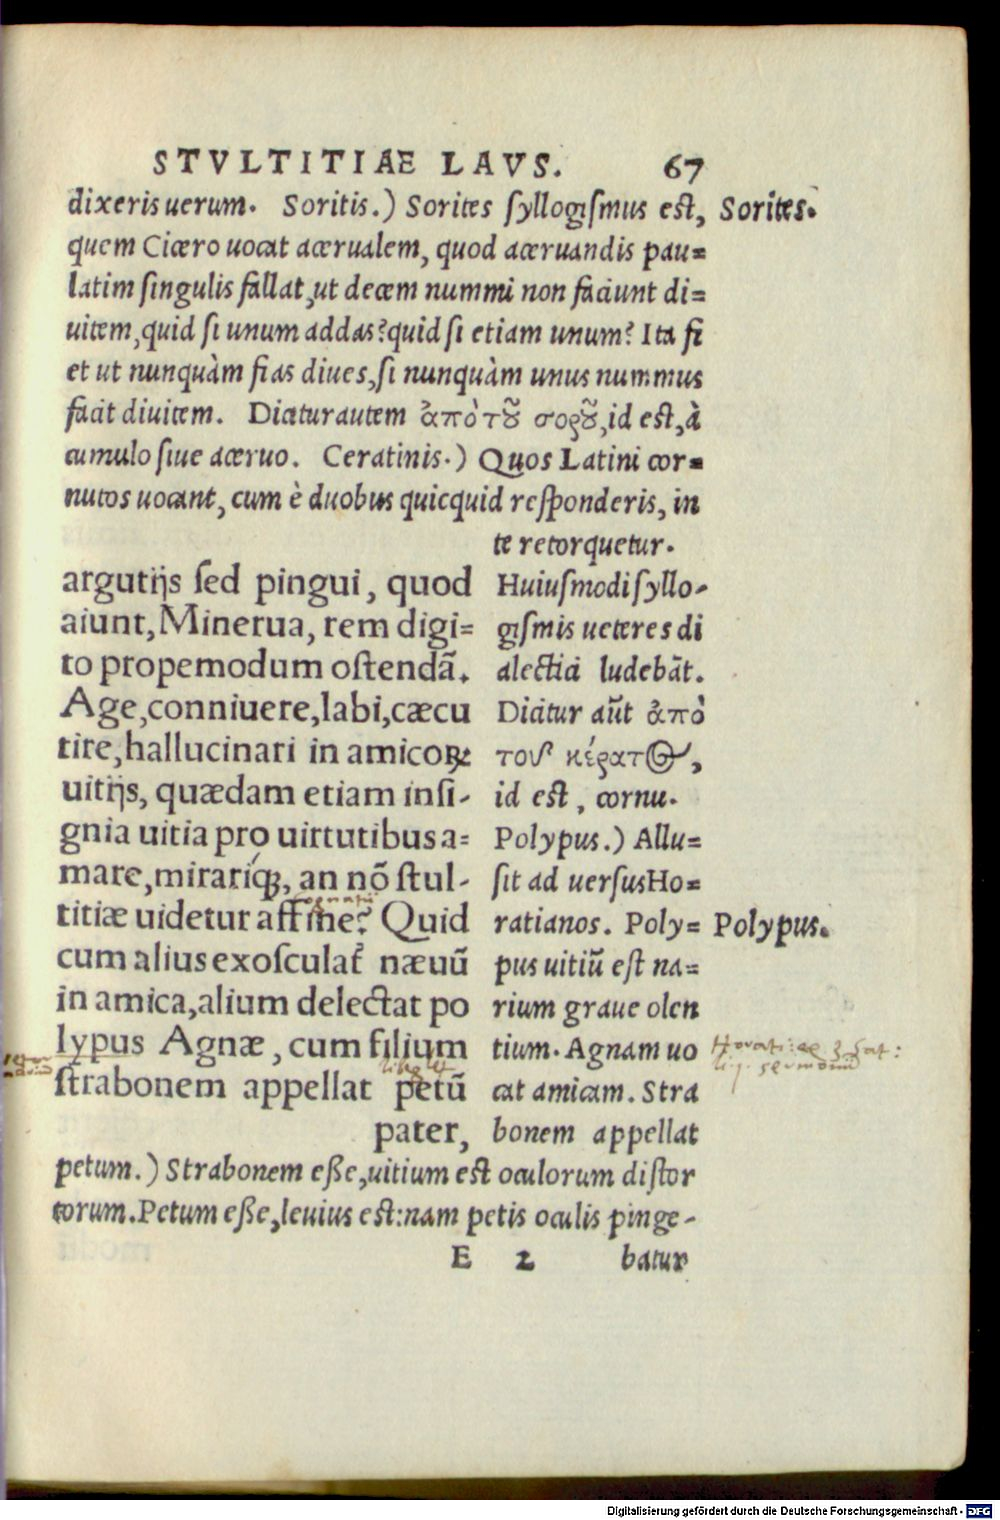 STVLTITIAE LAVS. 67
dixeris uerum. Soritis.) Sorites syllogismus est,
Sorites.
quem Cicero uocat aceruale­m, quod aceruandis pau=
latim singulis fallat, ut decem nummi non faciunt di=
uitem, quid si unum addas? quid si etiam unum? Ita fi
et ut nunquàm fias diues, si nunquàm unus nummus
facit diuitem. Dicitur autem ἀπὸ τȣ͂ σορȣ͂, id est, à
cumulo siue aceruo. Ceratinis.) Quos Latini cor=
nutos uocant, cum è duobus quicquid responderis, in
te retorquetur.
argutijs sed pingui, quod
aiunt, Minerua, rem digi=
to propemodum ostendã.
Age, conniuere, labi, cæcu
tire, hallucinari in amicoꝝ
uitijs, quædam etiam insi-
gnia uitia pro uirtutibus a=
mare, mirariq́ꝫ, an nõ stul-
titiæ uidetur affine? Quid
cum alius exosculat᷑ næuũ
in amica, alium delectat po
lypus Agnæ, cum filium
strabonem appellat petũ
pater,
Huiusmodi syllo-
gismis ueteres di
alectici ludebãt.
Dicitur aũt ἀπὸ
τοῦ κέρατος,
id est, cornu.
Polypus.) Allu=
sit ad uersus Ho=
ratianos. Poly=
Polypus.
pus uitiũ est na=
rium graue olen
tium. Agnam uo
cat amicam. Stra
bonem appellat
Horati: ae 3 sat:
li. j. sermonũ
petum.) Strabonem esse, uitium est oculorum distor
torum. Petum esse, leuius est: nam petis oculis pinge-
E 2 batur
Digitalisierung gefördert durch die Deutsche Forschungsgemeinschaft - DFG